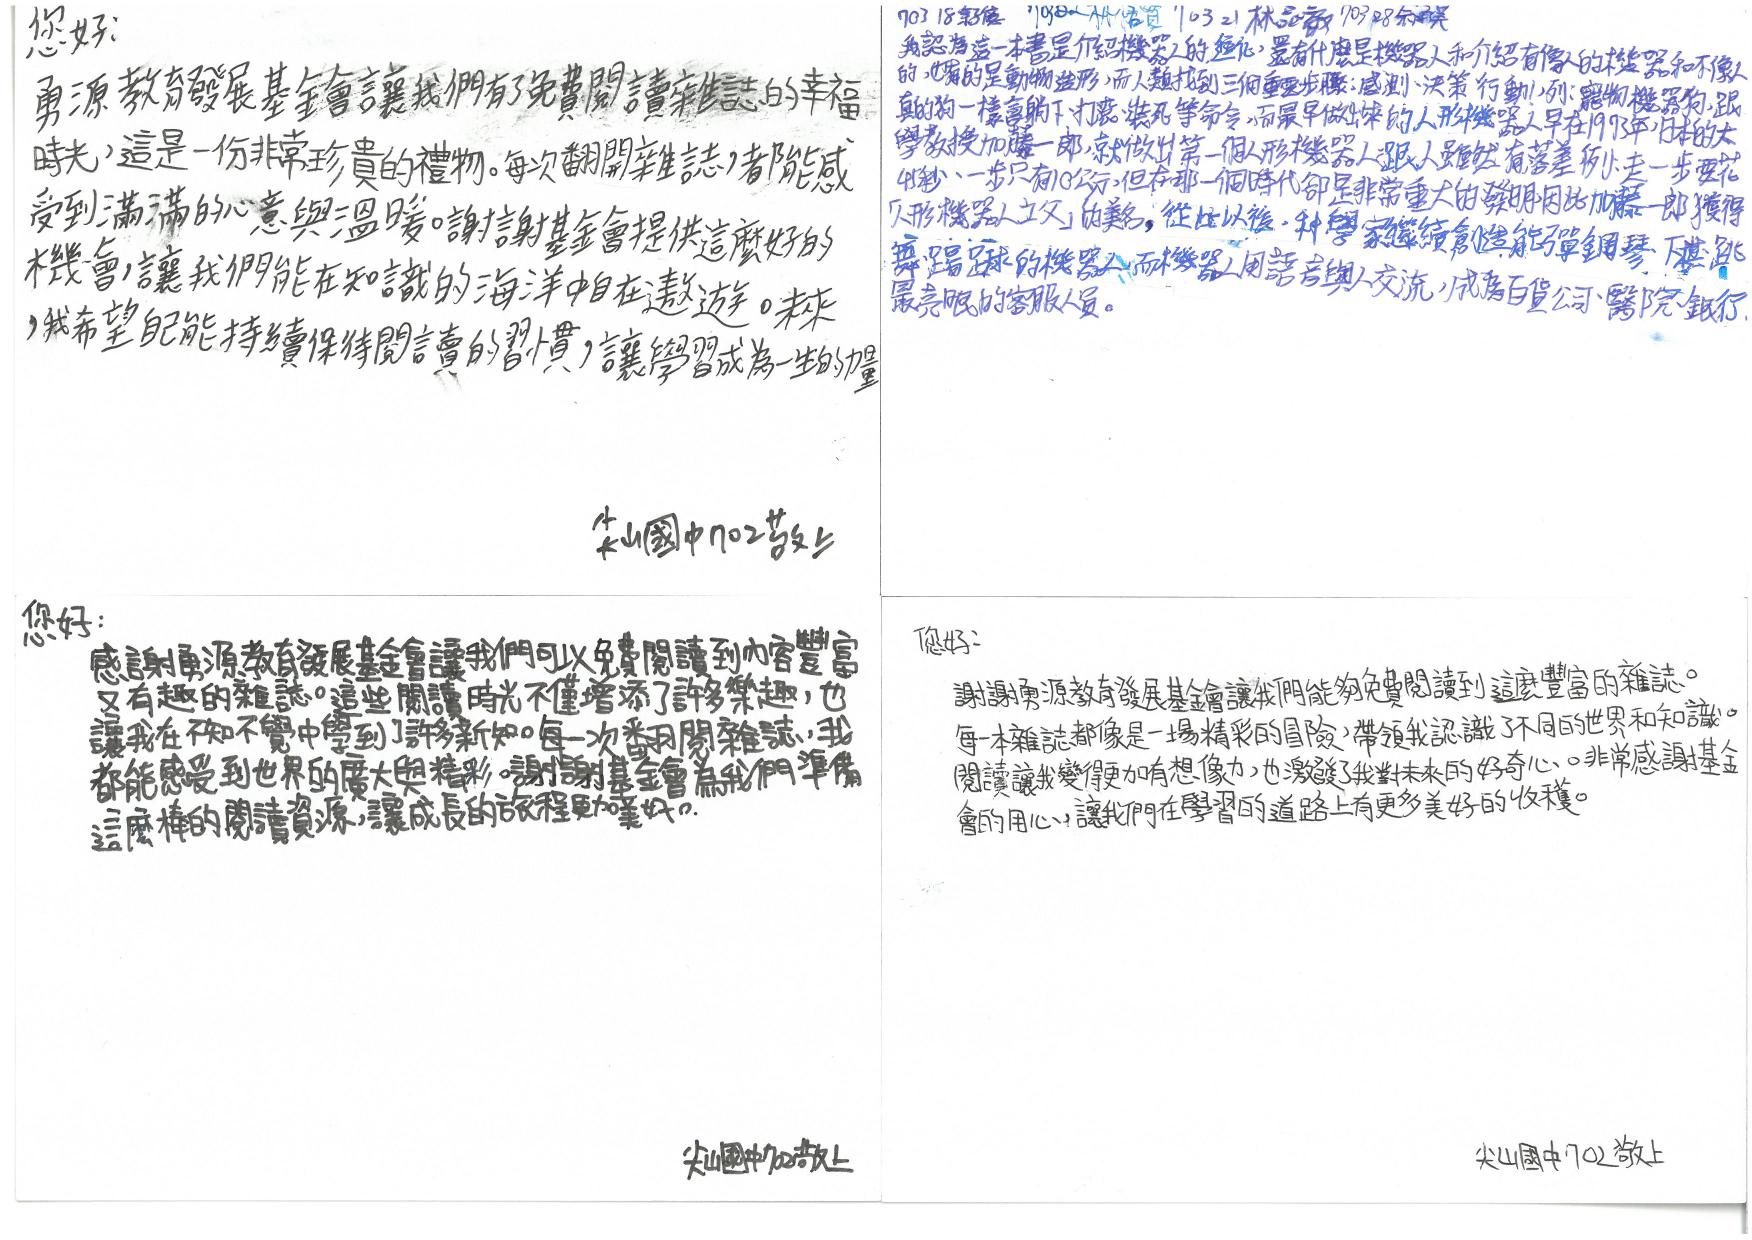 您好:
勇源教育發展基金會讓我們有了免費閱讀雜誌的幸福
時光,這是一份非常珍貴的禮物。每次翻開雜誌,都能感
受到滿滿的心意與溫暖。謝謝基金會提供這麼好的
機會,讓我們能在知識的海洋中自在遨遊。未來
,我希望自己能持續保持閱讀的習慣,讓學習成為一生的力量
尖山國中702敬上
703 18 703 703 21 林 703 28
我認為這一本書是介紹機器人的進化,還有什麼是機器人和介紹有像人的機器和不像人
的,有的是動物造形,而人類找到三個重要步驟:感測、決策、行動,例:寵物機器狗,跟
真的狗一樣會躺下、打滾、裝死等命令,而最早做出來的人形機器人早在1973年,日本的大
學教授加藤一郎,就做出第一個人形機器人,跟人雖然有落差例:走一步要花
45秒、一步只有10公分,但在那一個時代卻是非常重大的發明因此加藤一郎獲得
「人形機器人之父」的美名。從此以後,科學家繼續創造能彈鋼琴、下棋、跳
舞、踢足球的機器人,而機器人用語言與人交流,成為百貨公司、醫院、銀行
最亮眼的客服人員。
您好:
感謝勇源教育發展基金會讓我們可以免費閱讀到內容豐富
又有趣的雜誌。這些閱讀時光不僅增添了許多樂趣,也
讓我在不知不覺中學到了許多新知。每一次翻閱雜誌,我
都能感受到世界的廣大與精彩。謝謝基金會為我們準備
這麼棒的閱讀資源,讓成長的旅程更加美好。
尖山國中702敬上
您好:
謝謝勇源教育發展基金會讓我們能夠免費閱讀到這麼豐富的雜誌。
每一本雜誌都像是一場精彩的冒險,帶領我認識了不同的世界和知識。
閱讀讓我變得更加有想像力,也激發了我對未來的好奇心。非常感謝基金
會的用心,讓我們在學習的道路上有更多美好的收穫。
尖山國中702敬上